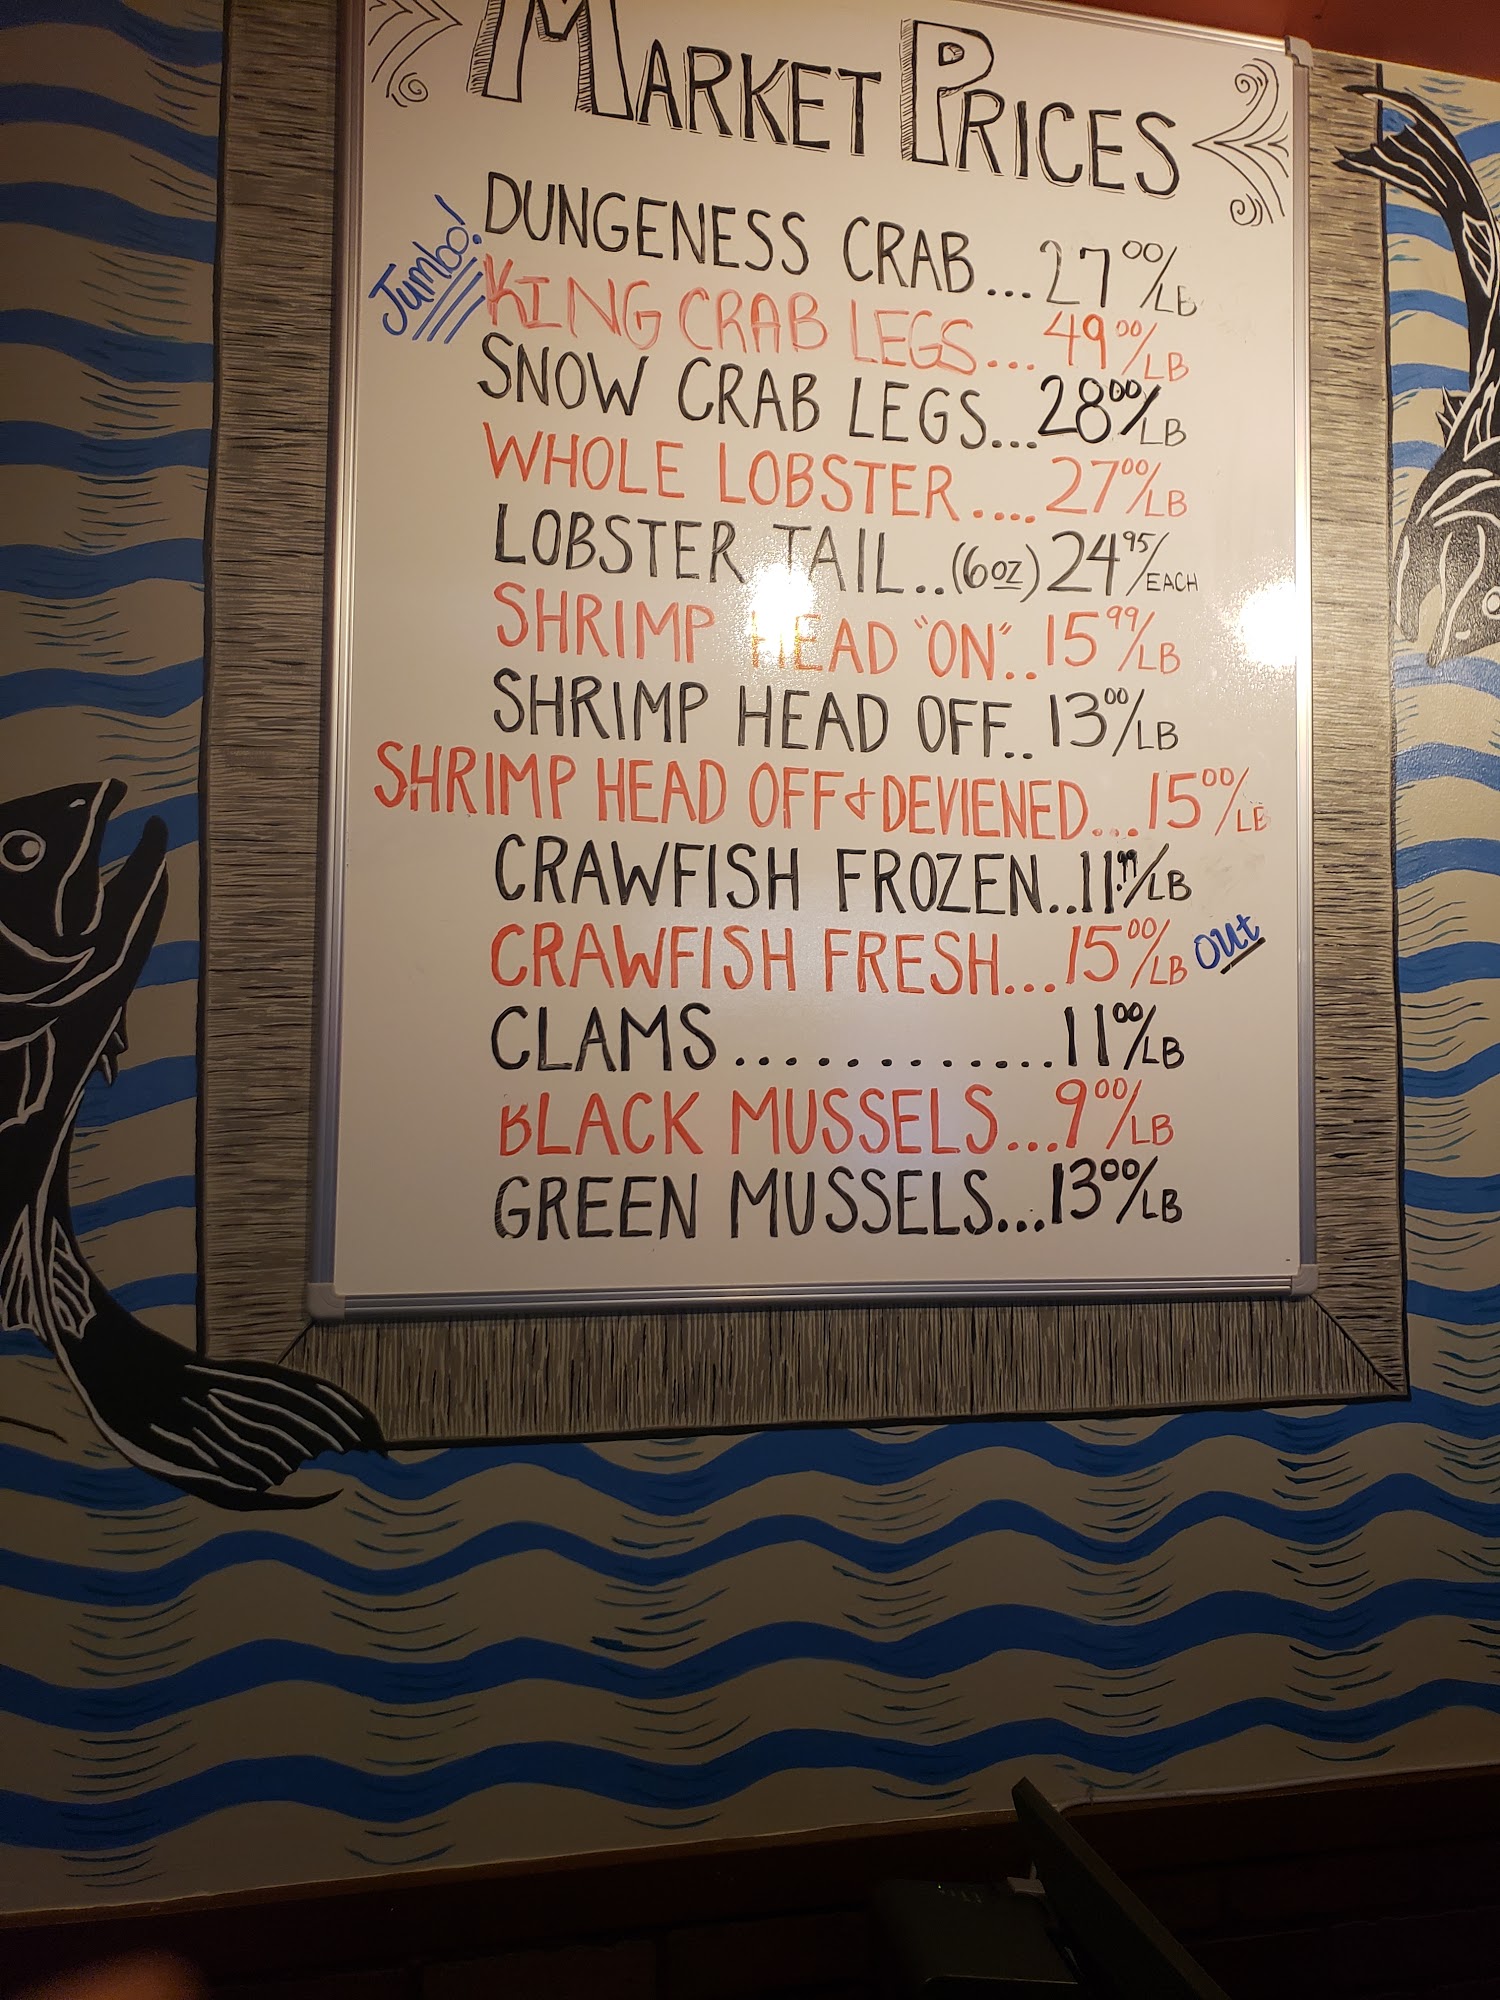 MARKET PRICES
DUNGENESS CRAB...27⁰⁰/LB
Jumbo! KING CRAB LEGS...49⁰⁰/LB
SNOW CRAB LEGS...28⁰⁰/LB
WHOLE LOBSTER....27⁰⁰/LB
LOBSTER TAIL..(6oz)24⁹⁵/EACH
SHRIMP HEAD "ON"..15⁹⁹/LB
SHRIMP HEAD OFF..13⁰⁰/LB
SHRIMP HEAD OFF & DEVIENED...15⁰⁰/LB
CRAWFISH FROZEN..11.⁹⁹/LB
CRAWFISH FRESH...15⁰⁰/LB out
CLAMS............11⁰⁰/LB
BLACK MUSSELS...9⁰⁰/LB
GREEN MUSSELS...13⁰⁰/LB